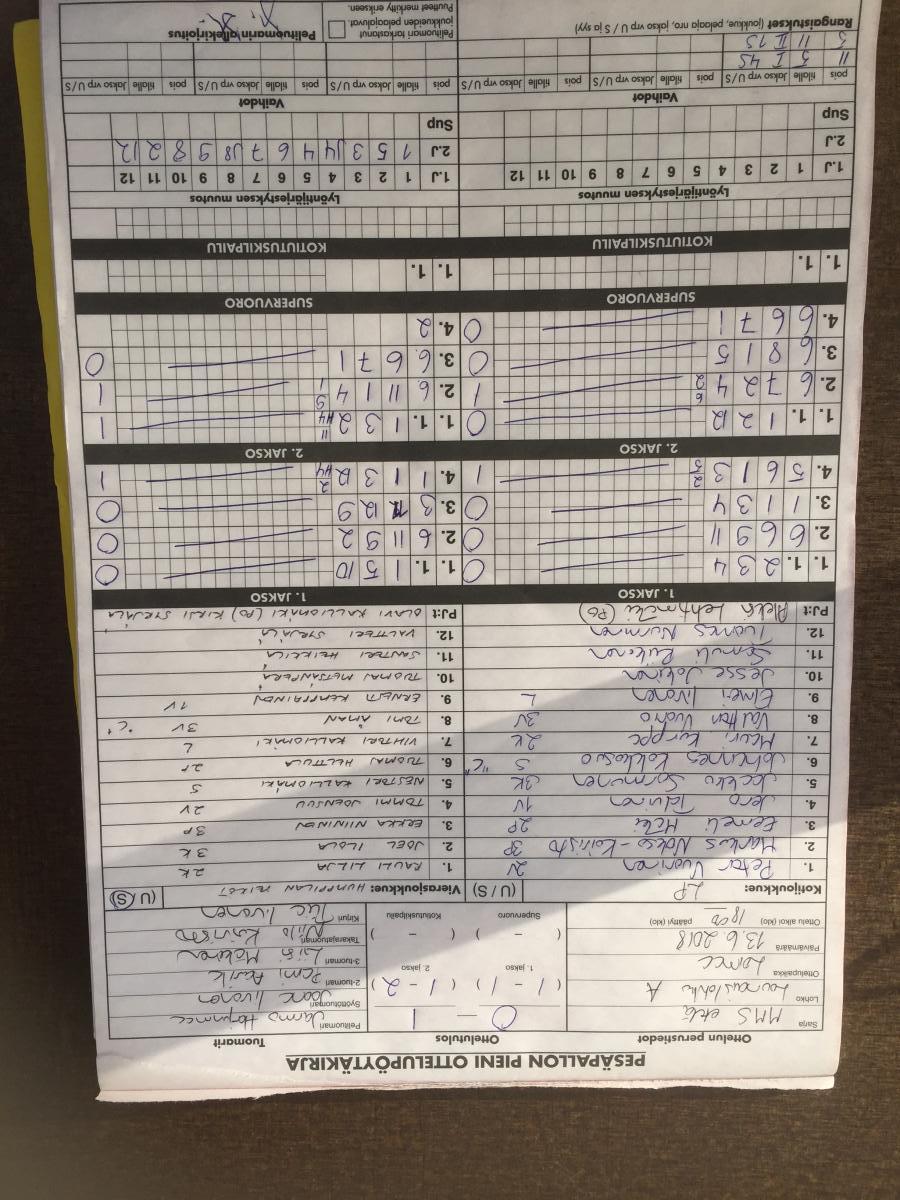 PESÄPALLON PIENI OTTELUPÖYTÄKIRJA
Ottelun perustiedot
Ottelutulos
Tuomarit
Sarja MMS etelä
Lohko Lounaislohko A
Ottelupaikka
Päivämäärä 13.6.2018
Ottelu alkoi (klo) 1800 päättyi (klo)
0 — 1
( 1 - 1 ) ( 1 - 2 )
1. jakso 2. jakso
( - ) ( - )
Supervuoro Kotiutuskilpailu
Pelituomari Jarmo
Syöttötuomari Iivonen
2-tuomari
3-tuomari Mäkinen
Takarajatuomari
Kirjuri Iivonen
Kotijoukkue: LP (U / S)
Vierasjoukkue: HUMPPILAN (U / S)
1. Petar Vuorinen 2V
2. Markus 3P
3. Eemeli Mäki 2P
4. Jero 1V
5. 3K
6. Johannes S "C"
7. Kurppa 2K
8. Vuorio 3V
9. Iivonen L
10. Jesse Jokinen
11. Samuli
12. Tuomas Nurminen
PJ:t Lehtimäki (PO)
1. RAULI LILJA 2K
2. JOEL ILOLA 3K
3. ERKKA NIININEN 3P
4. TOMMI JOENSUU 2V
5. NESTORI KALLIOMÄKI S
6. TUOMAS HELTTULA 2P
7. VIHTORI KALLIOMÄKI L
8. TOMI ÅMAN 3V "C"
9. ERNESTI KEMPPAINEN 1V
10. TUOMAS METSÄNPERÄ
11. SANTERI HEIKKILÄ
12. VALTTERI SYRJÄLÄ
PJ:t OLAVI KALLIOMÄKI (PO) KIRSI SYRJÄLÄ
1. JAKSO
1. 1. 2 3 4 0
2. 6 6 9 11 0
3. 1 1 3 4 0
4. 5 6 1 3 2 5 1
1. JAKSO
1. 1. 1 5 10 0
2. 6 11 9 2 0
3. 3 12 9 0
4. 1 1 3 12 1
2. JAKSO
1. 1. 1 2 12 0
2. 6 7 2 4 2 6 1
3. 6 8 1 5 0
4. 6 6 7 1 0
2. JAKSO
1. 1. 1 3 2 1
2. 6 11 1 4 9 1 1
3. 6 6 7 1 0
4. 2
SUPERVUORO
1. 1.
SUPERVUORO
1. 1.
KOTIUTUSKILPAILU
KOTIUTUSKILPAILU
Lyöntijärjestyksen muutos
1.J 1 2 3 4 5 6 7 8 9 10 11 12
2.J
Sup
Lyöntijärjestyksen muutos
1.J 1 2 3 4 5 6 7 8 9 10 11 12
2.J 1 5 3 J4 4 6 7 J8 9 8 2 12
Sup
Vaihdot
pois tilalle Jakso vrp U / S pois tilalle Jakso vrp U / S pois tilalle Jakso vrp U / S
11 5 I 4S
3 11 II 1S
Vaihdot
pois tilalle Jakso vrp U / S pois tilalle Jakso vrp U / S pois tilalle Jakso vrp U / S
Rangaistukset (joukkue, pelaaja nro, jakso vrp U / S ja syy)
Pelituomari tarkastanut
joukkueiden pelaajaluvat
Puutteet merkitty erikseen.
Pelituomarin allekirjoitus